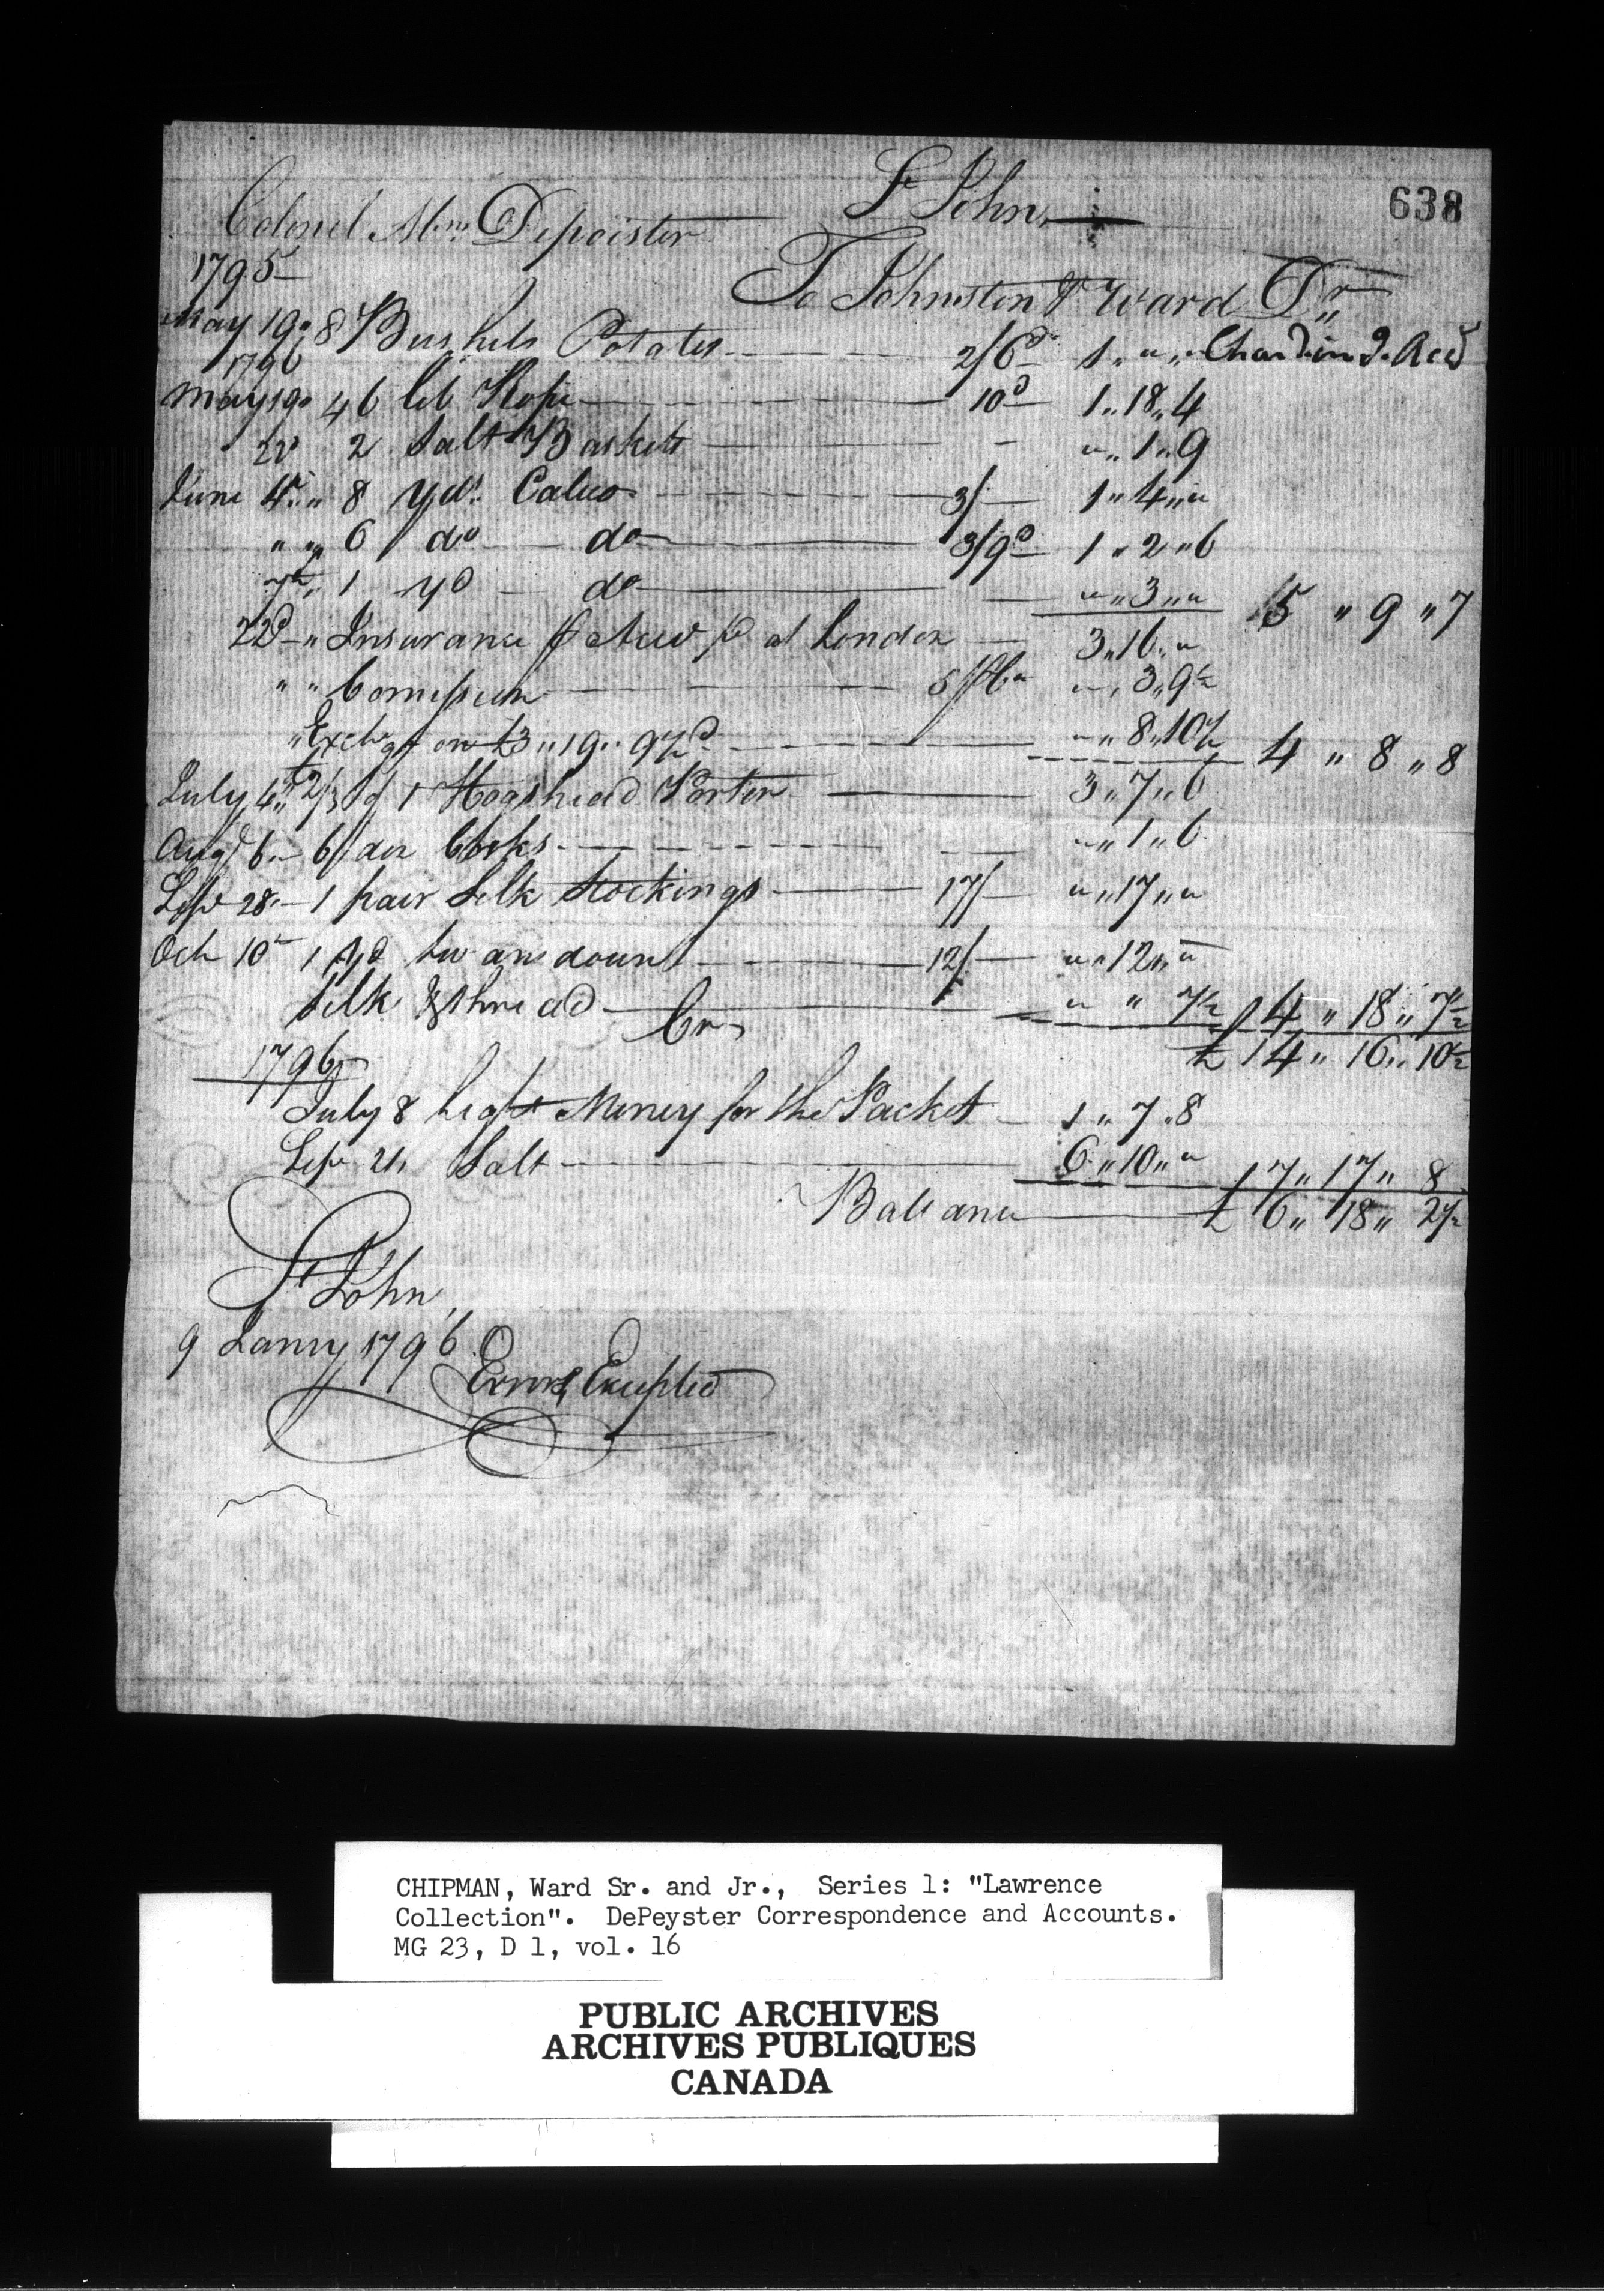 638
St John
Colonel Abm Depoister
1795
To Johnston & Ward Dr
May 19 " 8 Bushels Potatoes 2/6d 1 " " " Chard in J. Acct
1796
May 19 " 46 lb Rope 10d 1 " 18 " 4
2 Salt Baskets - " " 1 " 9
June 4 " " 8 yds Calico 3/ 1 " 4 " "
" " 6 do do 3/9d 1 " 2 " 6
7th " 1 yd do " " 3 " " 5 " 9 " 7
22d " Insurance at London 3 " 16 " "
" " Comission 5 " " 3 " 9½
" Exchg on £3 " 19 " 9½d " " 8 " 10½ 4 " 8 " 8
July 4th 2/3 of 1 Hogshead Porter 3 " 7 " 6
Augt 6 6 doz Corks " " 1 " 6
Sepr 28 1 pair Silk Stockings 17/ " " 17 " "
Oct 10 1 yd swansdown 12/ " " 12 " "
Silk & thread " " 7½ 4 " 18 " 7½
Cr £ 14 " 16 " 10½
1796
July 8 Light Money for the Packet 1 " 7 " 8
Sepr Salt 6 " 10 " " 7 " 17 " 8
Ballance £ 6 " 18 " 2½
St John
9 Janry 1796
Errors Excepted
CHIPMAN, Ward Sr. and Jr., Series 1: "Lawrence
Collection". DePeyster Correspondence and Accounts.
MG 23, D 1, vol. 16
PUBLIC ARCHIVES
ARCHIVES PUBLIQUES
CANADA